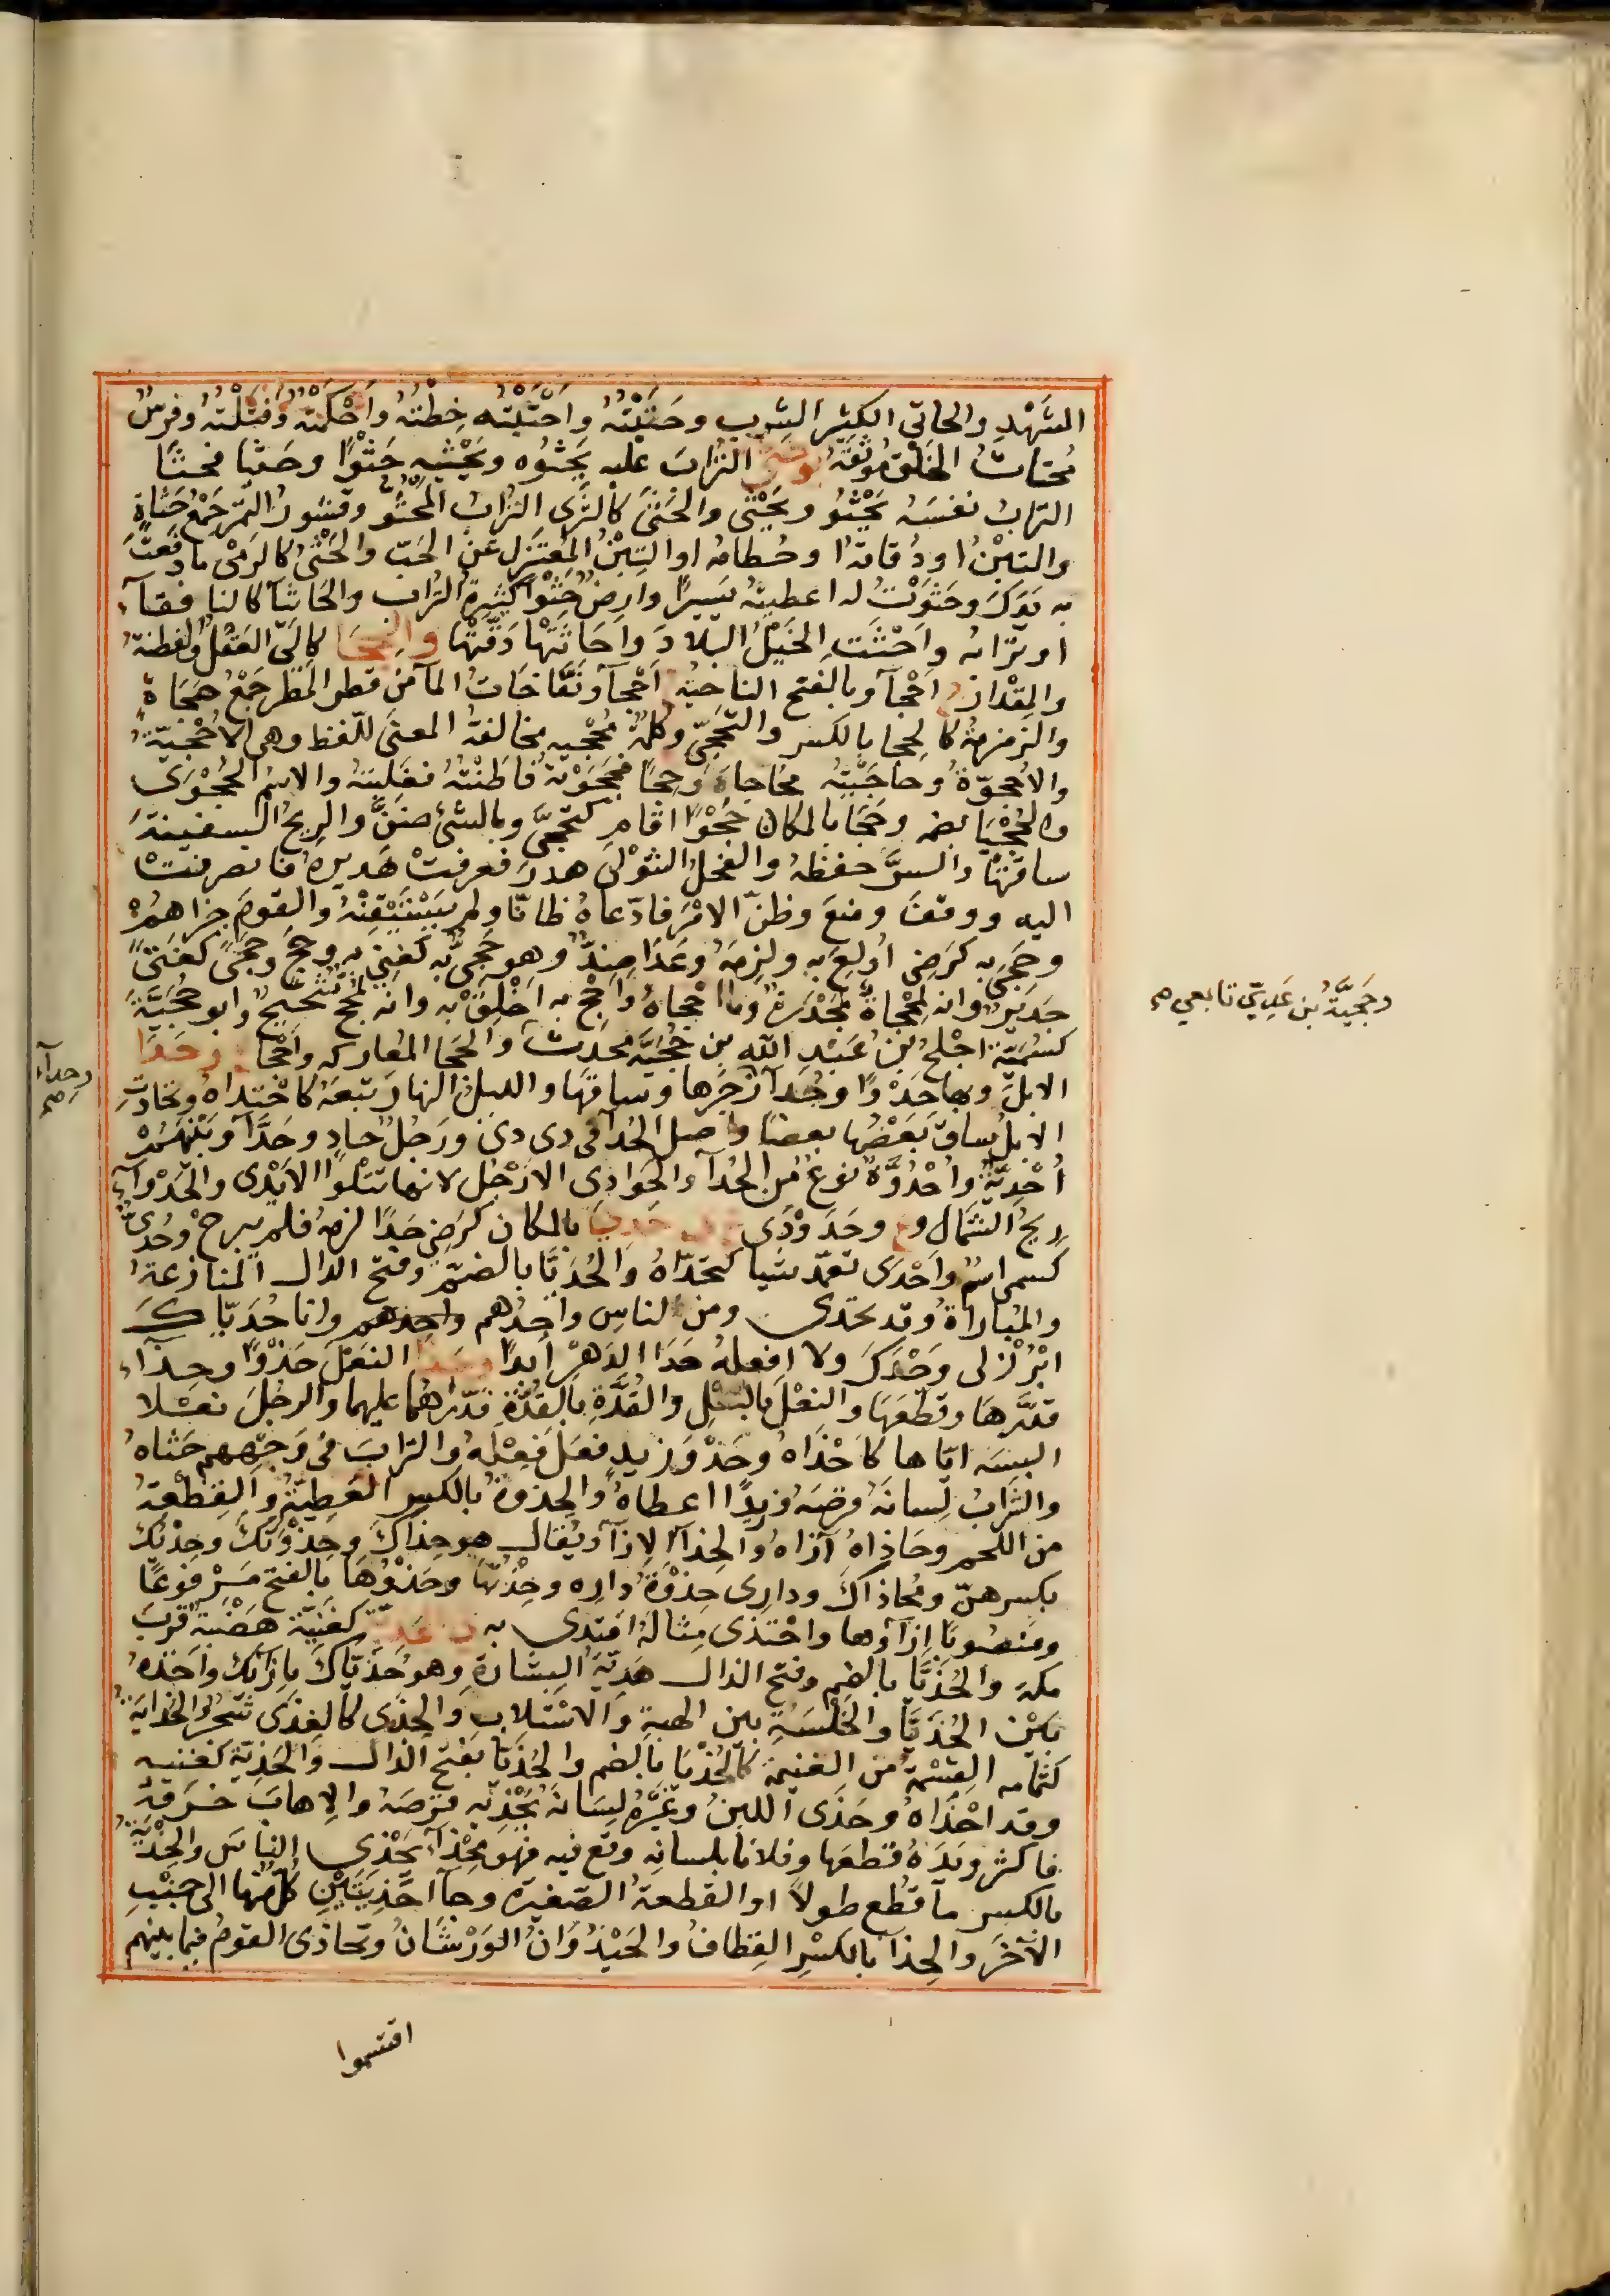 الشَهْدِ والحاتى الكثير الشرب وحَتَيْتُهُ واَحْتَيْتُه خِطْتُهُ واَحْكَمْتُه وفَتَلْتُهُ وفرسٌ
مُحتاتُ الخَلْق مُوثقُهُ التُرابَ عليه يَحْثُوه ويَحْثيه حَثْوًا وحَثْيًا فحَثَا
الترابُ نفسُه يَحْثُو ويَحْثى والحَثَى كالثَّرَى الترابُ المَحْثُوّ وقشورُ التمر جَمْعُ حَثاةٍ
والتِبْنُ او دُقاقه او حُطامه او التِبْنُ المُعتَزِل عَنِ الحَبّ والحَثْىُ كالرَمْى ما رَفَعتَ
به يَدَكَ وحَثَوْتُ له اعطيتُه يَسيرًا وارضٌ حَثْواُ كثيرة التُراب والحَاثيآ كالنافقآء
او ترابُه واَحْثَتِ الخَيْلُ البلادَ واَحاثَتْها دَقّتْها والحِجَا كاِلَى العَقْلُ والفطنةُ
والمِقْدارُ ج اَحْجآ وبالفتح الناحيَة ج اَحْجآ ونَفّاخاتُ المآ من قطر المَطَر جَمْعُ حَجَاةٍ
والزمزمةُ كالحِجا بالكسر والتَحَجّى وكلمة مُحْجيه مخالفة المعنى للّفظ وهى الاُحْجيّةُ
والاُحْجوّةُ وحاجَيْتُه مُحاجاةً وحِجًا فحَجَوْتهُ فاطَنْتُهُ فغَلبتُهُ والاسمُ الحُجْوَى
والحُجْيَا بضمه وحَجَا بالمكان حَجْوًا اقام كتحجّى وبالشئ ضنَّ والريحُ السفينةَ
ساقتها والسرَّ حفظهُ والفحلُ الشَوْلَ هدرَ فعرفتْ هَديرهُ فانصرفتْ
اليه ووقفَ ومنعَ وظنّ الامْرَ فادّعاهُ ظانّا ولم يَسْتَيْقِنْهُ والقومَ جزاهُمْ
وحَجىَ به كرَضِىَ اُولعَ به ولزِمَهُ وعَدَا ضِدٌّ وهو حَجىٌّ به كغَنِىٍّ به وحَجٍ وحَجًى كفَتًى
جَديرٌ وانه لمَحْجاةٌ لمَجْدَرةٌ وما اَحْجاهُ واَحْجِ به اَخْلِقْ به وانه لحَجِجٌ شَحيحٌ وابو حُجَيَّةَ
كسُمَيّةَ اجْلَحُ بنُ عَبْد الله بن حُجَيَّةَ محدِثٌ والحَجا المعاركه واَحْجا ع حَدَا
الابلَ وبها حَدْوًا وحُدآ زجَرها وساقَها والليلُ النهارَ تبعَهُ كاحْتداهُ وتحادَتِ
الابلُ ساقَ بَعْضُها بعضًا واصل الحُدآ فى دى دى ورَجُلٌ حادٍ وحَدَّآ وبَيْنَهُمْ
اُحْدِيَّةٌ واُحْدُوَّةٌ نوعٌ من الحُدآ والحَوادى الارْجُل لانها تتْلوا الاَيْدى والحَدْوآء
ريحُ الشَمالِ وع وحَدَوْدَى ع حَدِىَ بالمكان كرَضِىَ حَدًا لزِمهُ فلم يبرحْ وحُدَىٌّ
كسمىٍ اسمٌ واَحْدَى تعمّد شيا كتحدّاهُ والحُدَيّا بالضمّ وفتح الدال المنازعةُ
والمُباراةُ وقد تحدى ومن الناسِ واحِدُهم واحِدهم وانا حُدَيّاكَ
ابْرُزْ لى وَحْدَكَ ولا افعلهُ حَدَا الدَهْرِ اَبدًا وحَذَا النعَلَ حَذْوًا وحِذآء
قدَّرها وقطعَها والنعْلَ بالنعْلِ والقُذّة بالقُذّة قدّرهُما عليهما والرجُلَ نعَلا
البسَه ايّاها كاَحْذاهُ وحَذْوَ زيدٍ فعَلَ فِعْلَهُ والترابَ فى وَجْههم حثاهُ
والشرابُ لسانَهُ قرصَهُ وزيدًا اعطاهُ والحِذوةُ بالكسر العَطِيّةُ والقِطْعةُ
من اللحم وحَاذاهُ آزاهُ والحِذآ الاِزآ ويُقال هو حِذآكَ وحِذْوَتكَ وحِذتَكَ
بكسرهنّ ومُحاذاكَ ودارى حِذْوَةَ داره وحِذتُها وحَذْوُها بالفتح مَرفوعًا
ومنصُوبًا اِزآؤها واحْتذى مثالَهُ اقتدى به كغَنِيّةٍ هَضْبَةٌ قربَ
مكةَ والحُذَيَّا بالضم وفتح الذال هَدِيّةُ البِشارةِ وهو حُذَيّاكَ بازآئكَ واَخَذهُ
بَيْنَ الحُذَيَّا والخُلْسَةِ بين الهبةِ والاسْتلابِ والحِذَى كالغِذَى شَجَرٌ والحُذايَةُ
كثُمامه القِسْمةُ من الغنيمة كالحُذْيا بالضم والحُذَيَّا بفتح الذال والحَذيّة كغَنيه
وقد احْذاهُ وحَذَى اللبنُ وغيْرُهُ لسَانَهُ يَحْذيْه قرَصَهُ والاِهابَ خَرَقهُ
فاكثر ويَدَهُ قطعَها وفلانًا بلسانِه وقع فيه فهو مِحْذآء يَحْذى الناسَ والحِذْيَةُ
بالكسر مآ قُطع طولاً او القطعةُ الصَغيرة وجآ احَذِيَتَيْن كلّ منها الى جَنْب
الآخَر والحِذآ بالكسْر القِطافُ والحَيْذُوَانُ الوَرْشانُ وتحاذى القومُ فيما بينهم
وحُجَيَّةُ بن عَدِيّ تابعي صح
وحِدآء صح
اقتسموا